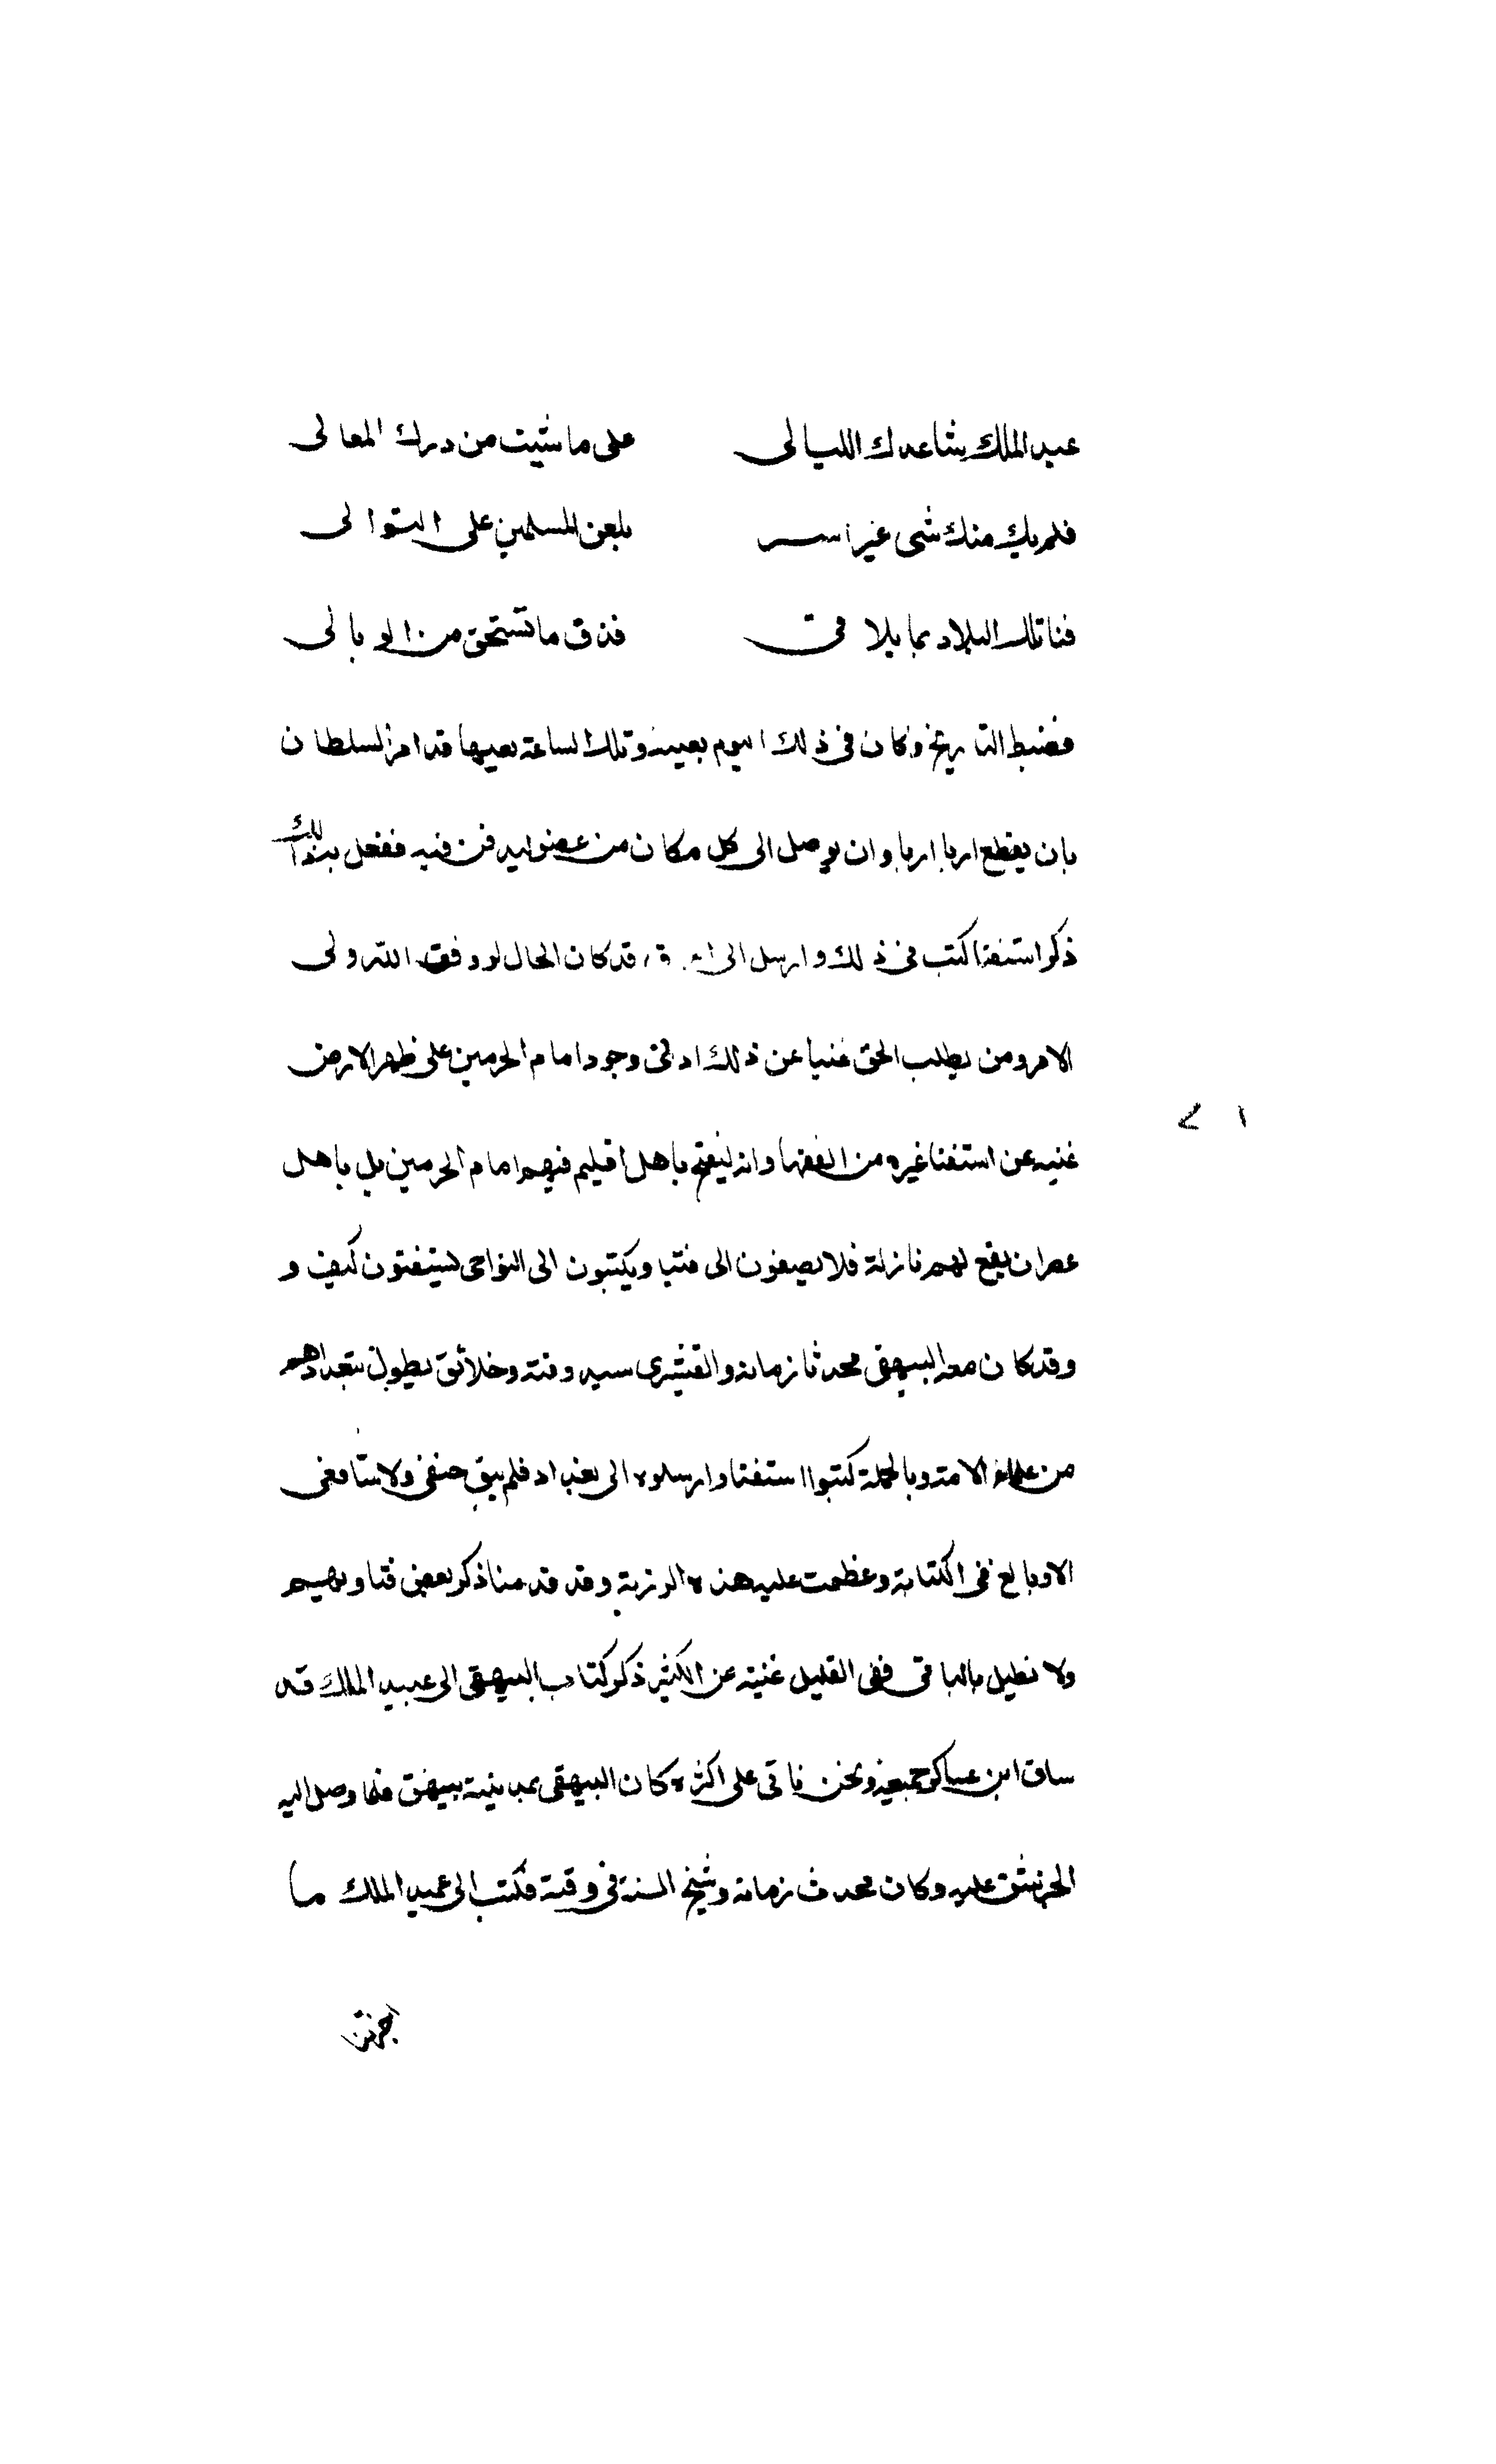 عميد الملك ساعدك الليالى على ما شيت من درك المعالى
فلم يك منك شى غير امر بلعن المسلمين على التوالى
فناتلك البلاد بما يلاقى فذق ما تستحق من الوبالى
فضبط التاريخ وكان فى ذلك اليوم بعينه وتلك الساعة بعينها قد امر السلطان
بان يقطع اربا اربا وان يوصل الى كل مكان من عضو ليدفن فيه ففعل به ذلك
ذكر استفتا كتب فى ذلك وارسل الى قد كان الحال لو وفق الله ولى
الامر ومن يطلب الحق غنيا عن ذلك اد فى وجود امام الحرمين على ظهر الارض
غنيه عن استفتا غيره من الفقها وانه ليقبح باهل اقليم فيهم امام الحرمين بل باهل
عصر ان يقع لهم نازلة فلا يصغون الى فتيا ويكتبون الى النواحى يستفتون كيف و
وقد كان معه البيهقى محدث زمانه والقشيرى سيد وقته وخلائق يطول تعدادهم
من علماء الامة وبالجملة كتبوا استفتا وارسلوه الى بغداد فلم يبق حنفى ولا شافعى
الا وبالغ فى الكتابة وعظمت عليه هذه الرزية وقد قدمنا ذكر بعض فتاويهم
ولا نطيل بالباقى ففى القليل غنية عن الكثير ذكر كتاب البيهقى الى عميد الملك قد
ساق ابن عساكر جميعه ونحن ناتى على اكثره كان البيهقى بمدينة بيهق فلما وصل اليه
الخبر شق عليه وكان محدث زمانه وشيخ السنة فى وقته فكتب الى عميد الملك ما